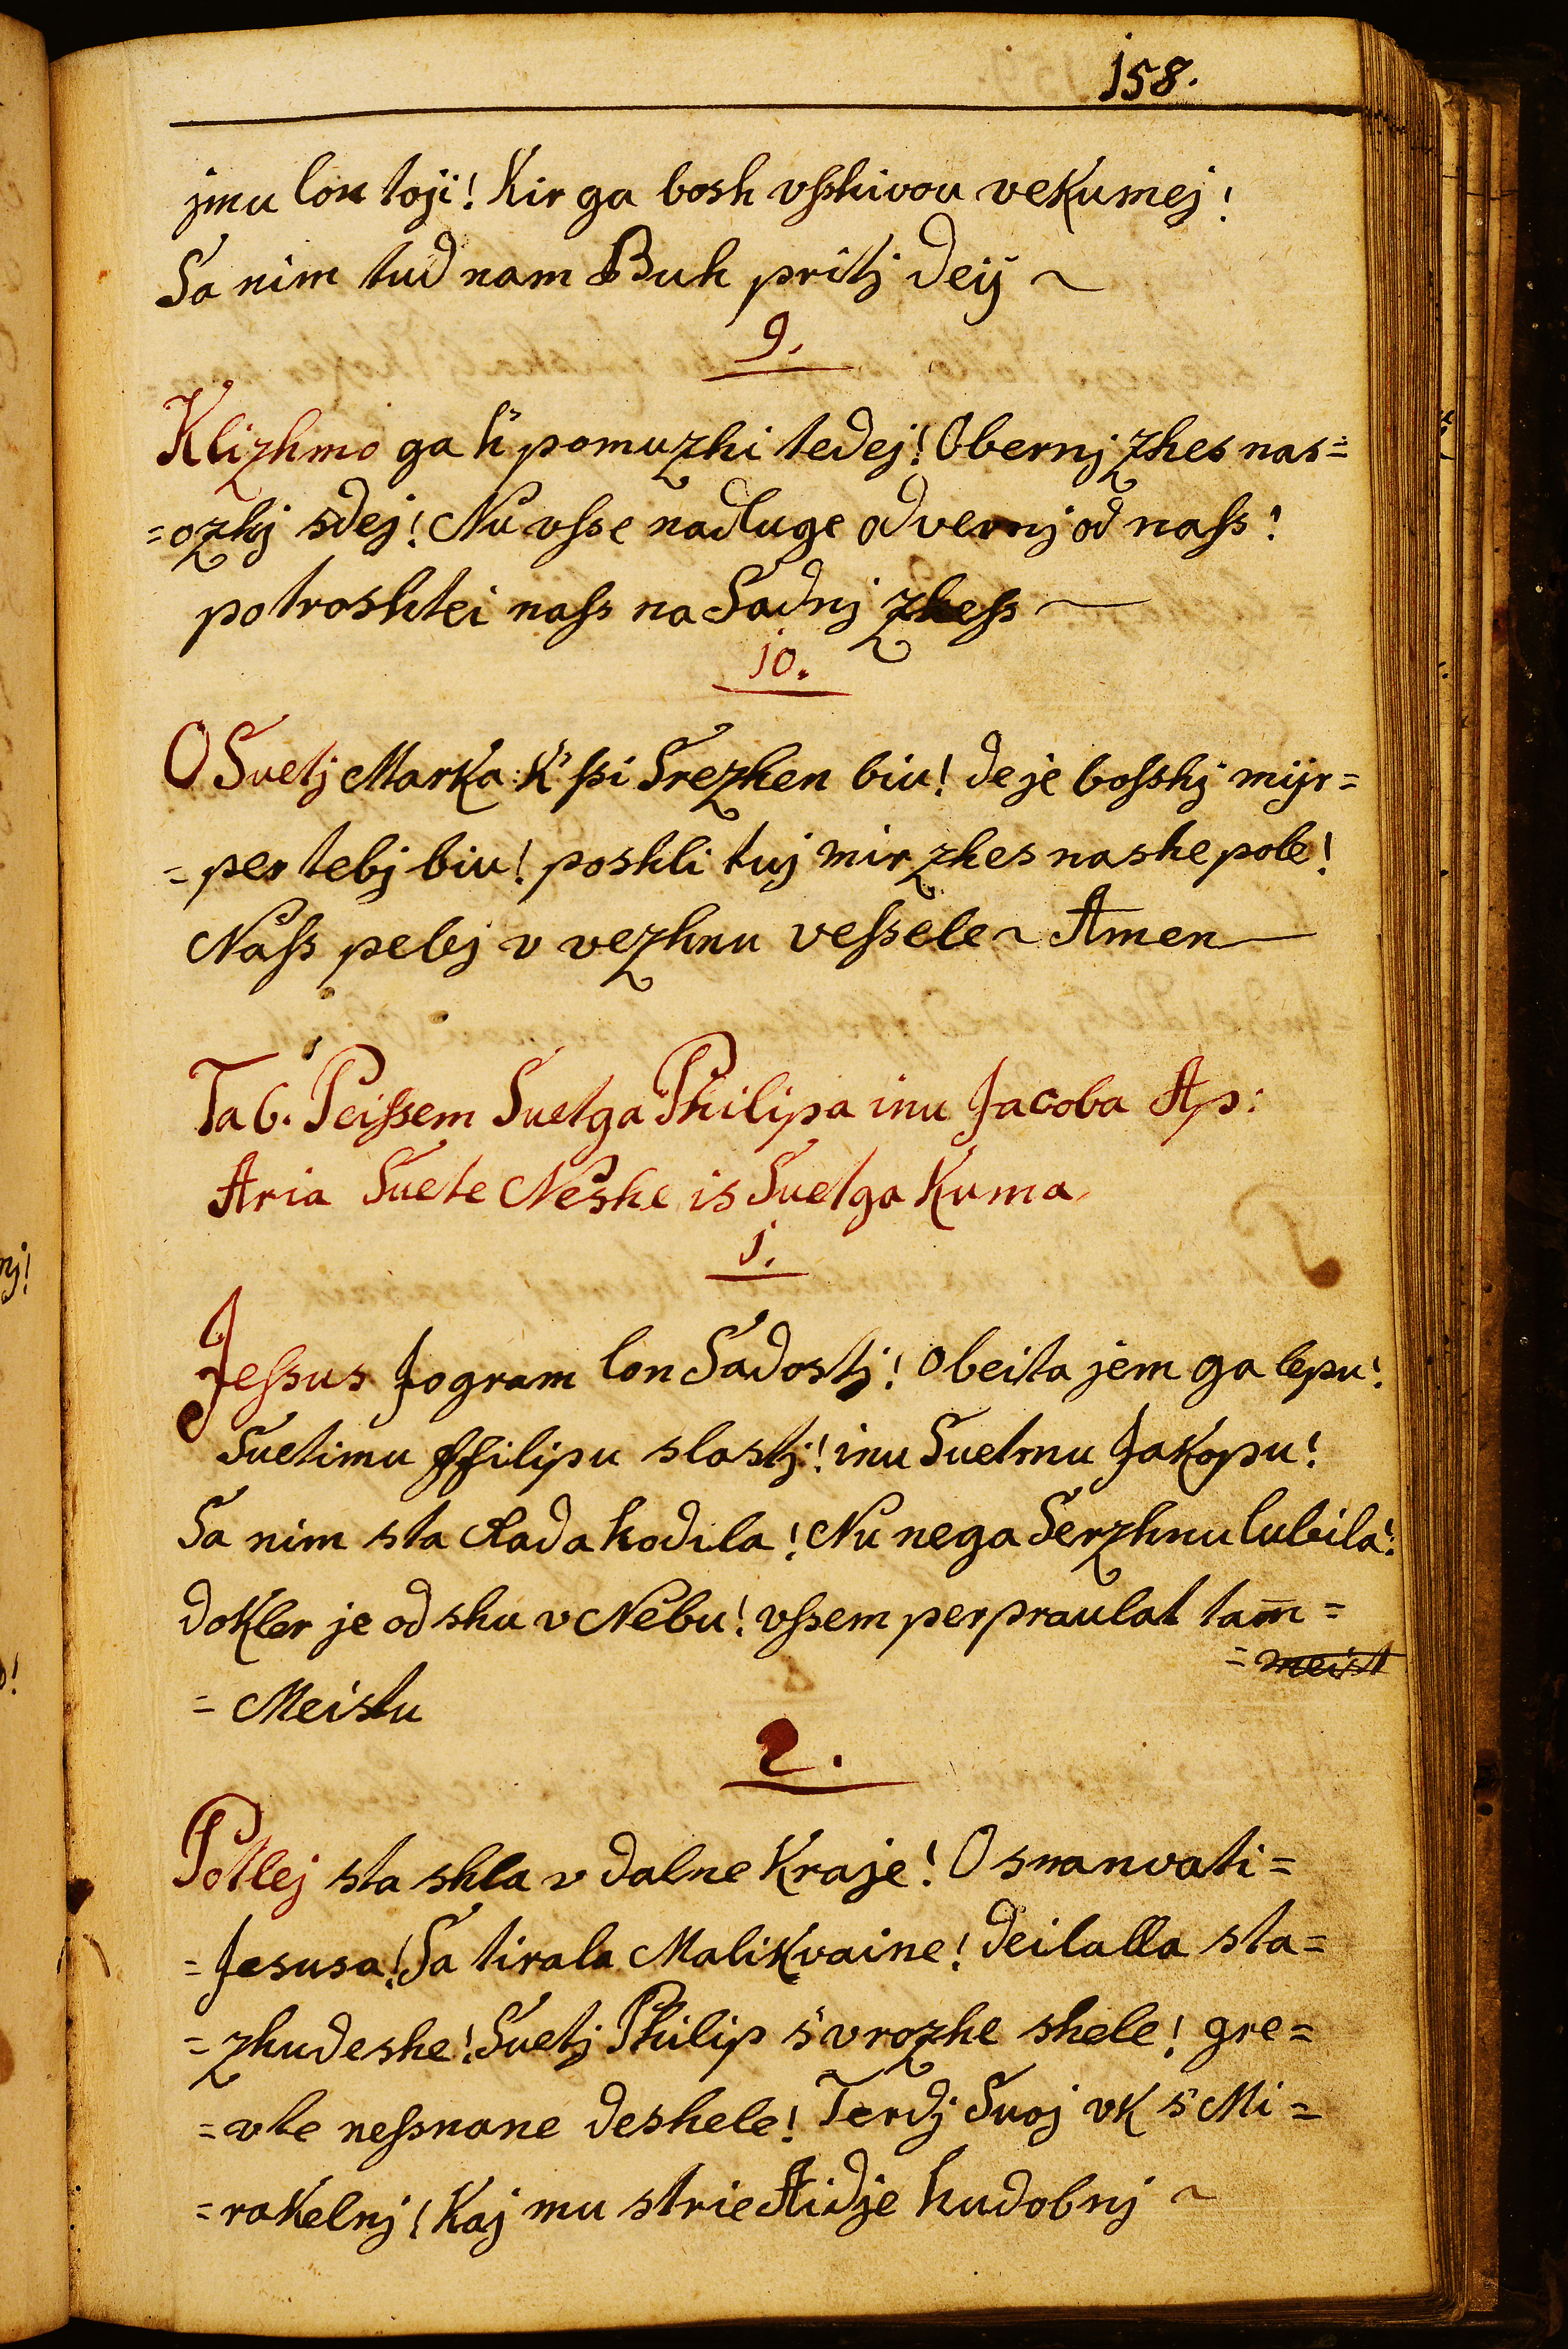 158.
jmu lon toji! Kir ga bosh vſshivou vekumej!
Sa nim tud nam Buh pritj deij ~
9.
Klizhmo ga k' pomuzhi tedej! Obernj zhes nas=
=ozhj sdej! Nu vſse nadluge odvernj od naſs!
potroshtei naſs na Sadnj zheſs ~
10.
O Suetj Marka: K' ſsi Srezhen biu! de je boſshj mijr=
=per tebj biu! poshli tuj mir zhes nashe pole!
Naſs pelej v vezhnu veſsele ~ Amen
Ta 6. Peiſsem Suetga Philipa inu Jacoba Ap:
Aria Suete Neshe is Suetga Kuma
1.
Jeſsus Jogram lon Sadostj! Obeita jem ga lepu!
Suetimu ffilipu slostj! inu Suetmu Jakopu!
Sa nim sta rada hodila! Nu nega Serzhnu lubila!
dokler je od shu v Nebu! vſsem perpraulat tam̄=
=meist
=Meistu
2.
Potlej sta shla v dalne kraje! Osnanvati=
=Jesusa! Sa tirala Malikvaine! deilalla sta=
=zhudeshe! Suetj Philip s' vrozhe shele! gre=
=vte neſsnane deshele! Terdj Suoj vk s' Mi=
=rakelnj! Kaj mu strie Aidje hudobnj ~
nj!
!